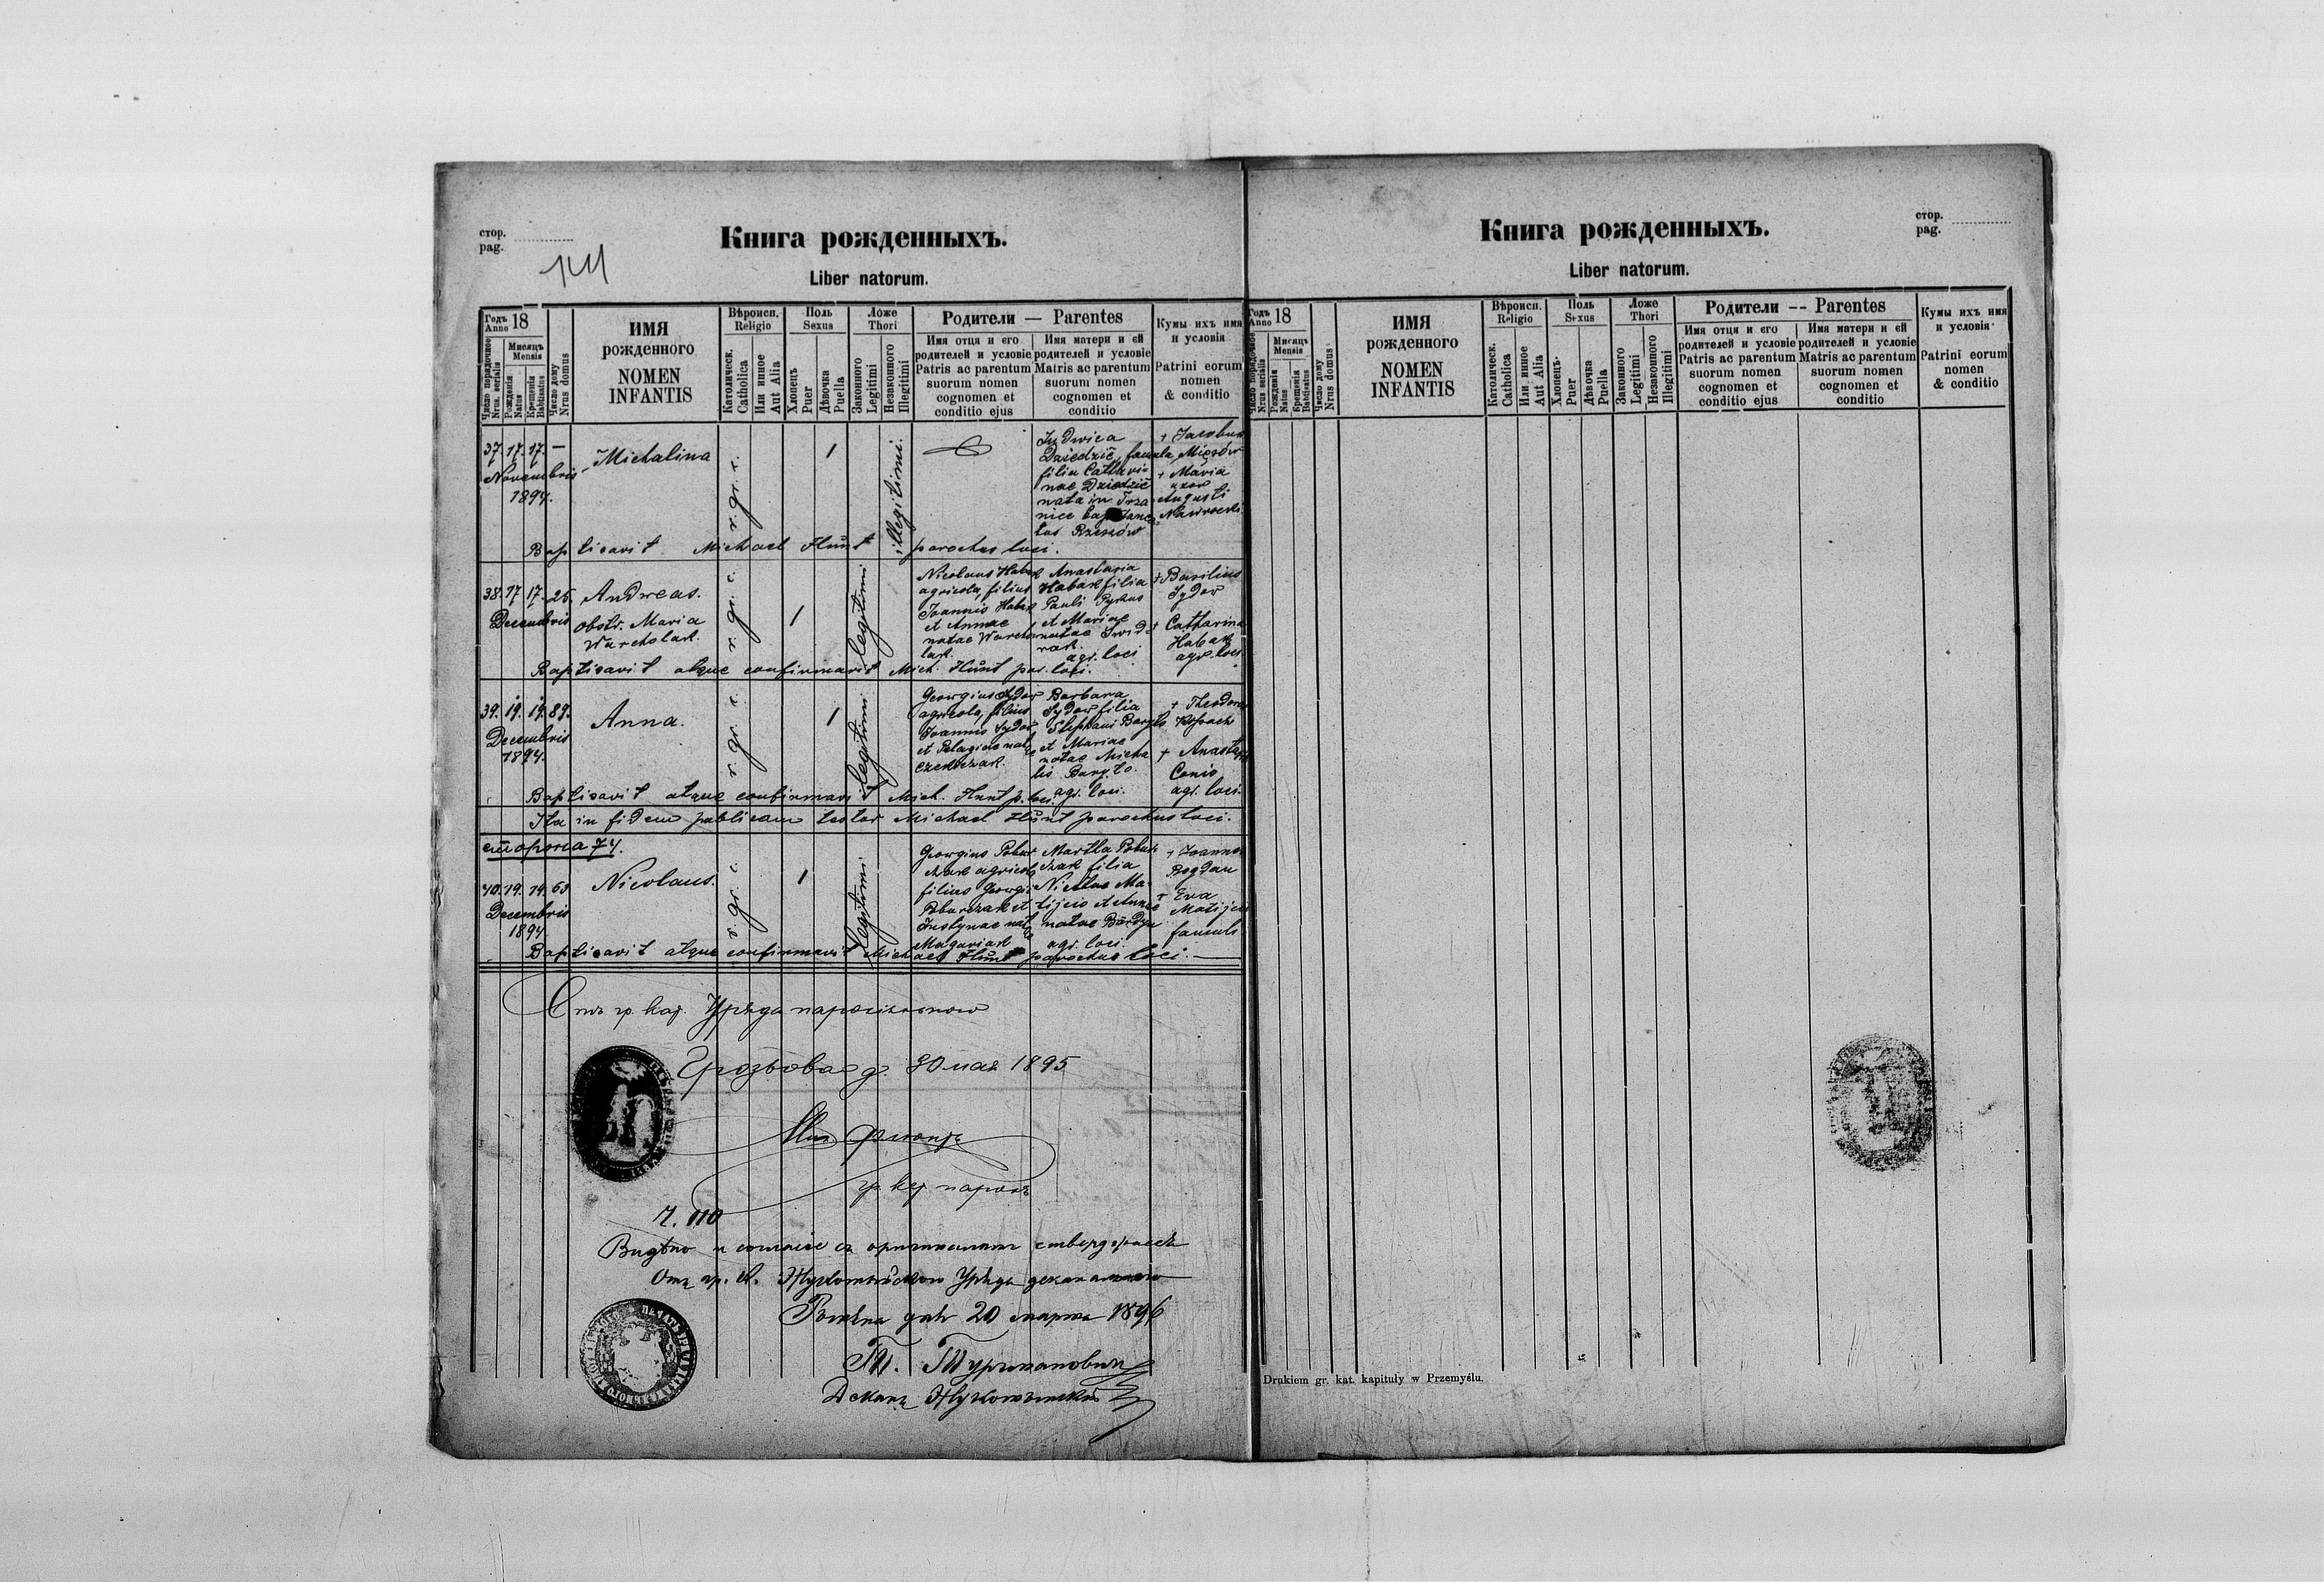 стор.
pag.
141
Книга рожденныхъ.
Liber natorum.
Годъ
Anno 18
Число порядочное
Nrus. serialis
Мѣсяцъ
Mensis
Рожденія
Natus
Крещенія
Babtisatus
Число дому
Nrus domus
ИМЯ
рожденного
NOMEN
INFANTIS
Вѣроисп.
Religio
Католическ.
Catholica
Или инное
Aut Alia
Полъ
Sexus
Хлопецъ
Puer
Дѣвочка
Puella
Ложе
Thori
Законного
Legitimi
Незаконного
Illegitimi
Родители — Parentes
Имя отця и єго
родителей и условіе
Patris ac parentum
suorum nomen
cognomen et
conditio ejus
Имя матери и єй
родителей и условіе
Matris ac parentum
suorum nomen
cognomen et
conditio
Кумы ихъ имя
и условія
Patrini eorum
nomen
& conditio
37. 17. 17. —
Novembris
1894.
Michalina
r. gr. c.
1
illegitimi.
Dziedzic, famula
filia Cathari-
nae Dziedzic
nata in
Rzeszów
+ Jacobus
+ Maria
uxor
Augusti
Nawrocki
Baptisavit Michael Hunt parochus loci.
38. 17. 17. 26.
Decembris
Andreas.
obstr. Maria
Warcholak.
r. gr. c.
1
legitimi
Nicolaus Habak
agricola, filius
Joannis Habak
et Annae
natae Warcho-
lak.
Anastasia
Habak filia
Pauli Pyrkus
et Mariae
natae
agr. loci
+ Basilius
Sydor
+ Catharina
Habak
agr. loci
Baptisavit atque confirmavit Mich. Hunt par. loci.
39. 19. 19. 89.
Decembris
1894.
Anna.
r. gr. c.
1
legitimi
Georgius Sydor
agricola, filius
Joannis Sydor
et Pelagiae natae
Barbara
Sydor filia
Stephani
et Mariae
natae Micha
agr. loci.
+ Theodorus
+ Anastasia
agr. loci.
Baptisavit atque confirmavit Mich. Hunt p. loci.
Ita in fidem publicam testor Michael Hunt parochus loci.
сторона 74.
40. 19. 19. 63
Decembris
1894
Nicolaus.
r. gr. c.
1
legitimi
agricola
filius Georgii
et
Justynae natae
Martha
filia
Nicolae Ma-
tijcio et Annae
natae
agr. loci.
+ Joannes
Bogdan
+ Eva
Matijcio
famuli
Baptisavit atque confirmavit Michael Hunt parochus loci. —
Отъ гр. кат. Уряда парохіяльного
Грозьова д. 30 мая 1895
гр. кат. парохъ
Ч. 110
Видѣно и согласіе съ оригиналомъ стверджаесь
Отъ гр. к. Жукотынского Уряда деканального
дня 20 марта 1896
Т. Турчмановичъ
Деканъ Жукотынскій
стор.
pag.
Книга рожденныхъ.
Liber natorum.
Годъ
Anno 18
Число порядочное
Nrus serialis
Мѣсяцъ
Mensis
Рожденія
Natus
Крещенія
Babtisatus
Число дому
Nrus domus
ИМЯ
рожденного
NOMEN
INFANTIS
Вѣроисп.
Religio
Католическ.
Catholica
Или инное
Aut Alia
Полъ
Sexus
Хлопецъ
Puer
Дѣвочка
Puella
Ложе
Thori
Законного
Legitimi
Незаконного
Illegitimi
Родители -- Parentes
Имя отця и єго
родителей и условіе
Patris ac parentum
suorum nomen
cognomen et
conditio ejus
Имя матери и єй
родителей и условіе
Matris ac parentum
suorum nomen
cognomen et
conditio
Кумы ихъ имя
и условія
Patrini eorum
nomen
& conditio
Drukiem gr. kat. kapituły w Przemyślu.